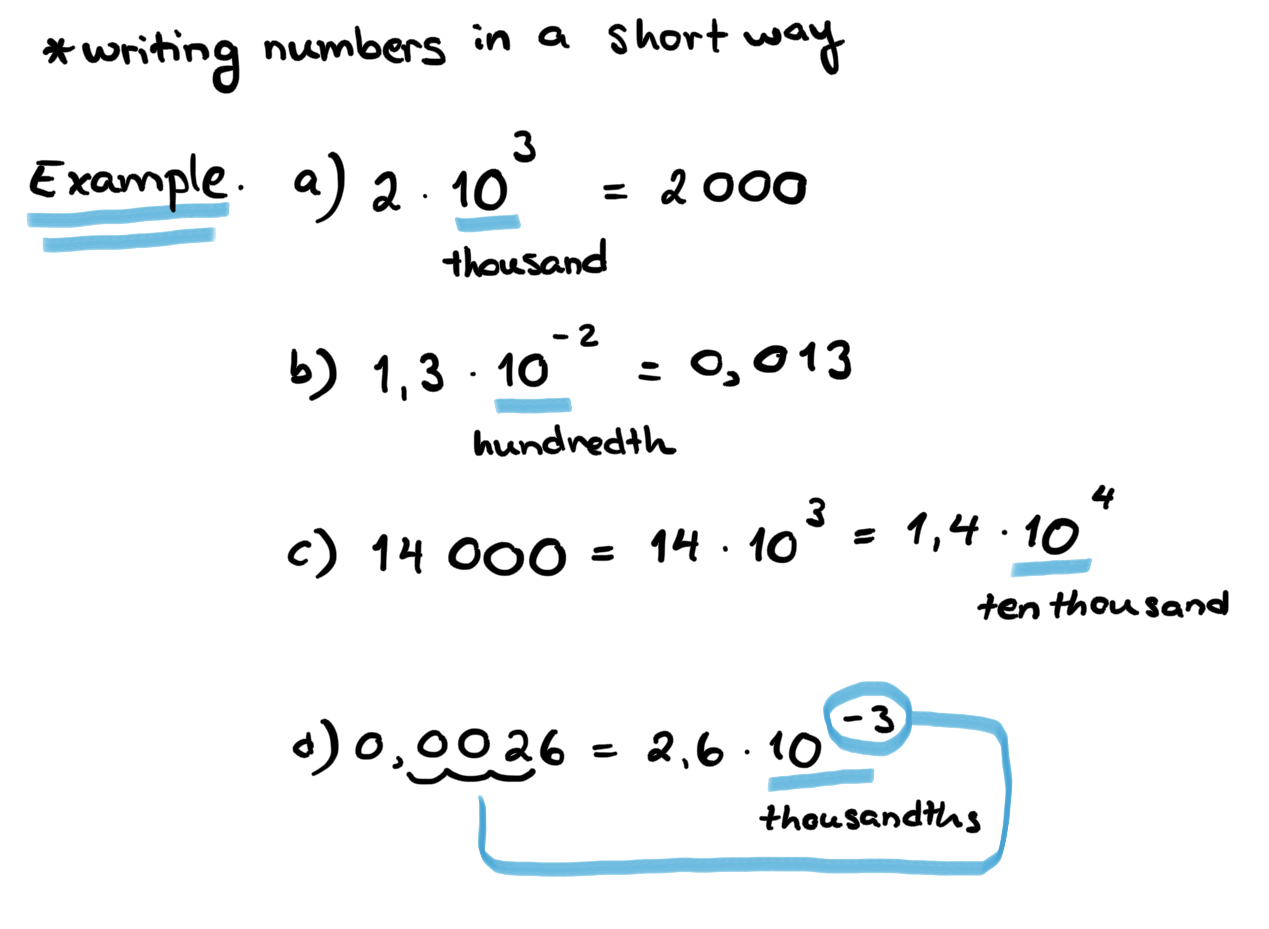 *writing numbers in a short way
Example. a) 2 · 10³ = 2 000
thousand
b) 1,3 · 10⁻² = 0,013
hundredth
c) 14 000 = 14 · 10³ = 1,4 · 10⁴
ten thousand
d) 0,0026 = 2,6 · 10⁻³
thousandths